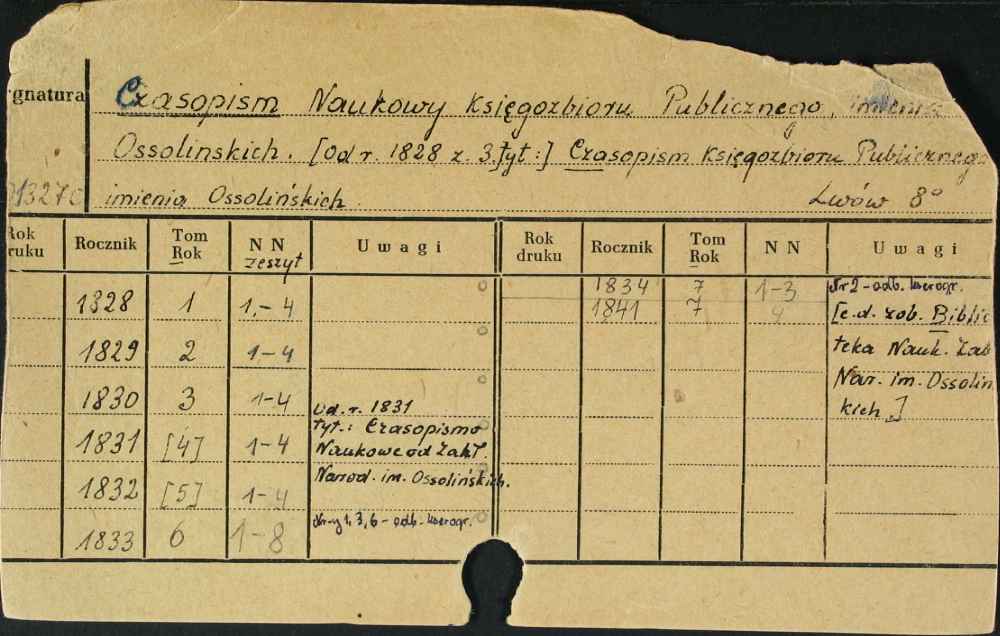 gnatura
Czasopism Naukowy Księgozbioru Publicznego, imienia
Ossolinskich. [Od r. 1828 z. 3. tyt:] Czasopism Księgozbioru Publicznego
imienia Ossolińskich. Lwów 8°
1327
Rok druku Rocznik Tom Rok NN zeszyt Uwagi
1828 1 1-4
1829 2 1-4
1830 3 1-4
1831 [4] 1-4 Od. r. 1831
tyt.: Czasopismo
Naukowe od Zakł.
Narod. im. Ossolińskich.
1832 [5] 1-4
1833 6 1-8 Nr-y 1, 3, 6 - odb. kserogr.
Rok druku Rocznik Tom Rok NN Uwagi
1834 7 1-3 Nr 2 - odb. kserogr.
1841 7 4 [c.d. zob. Biblio
teka Nauk. Zakł
Nar. im. Ossoliń
kich.]